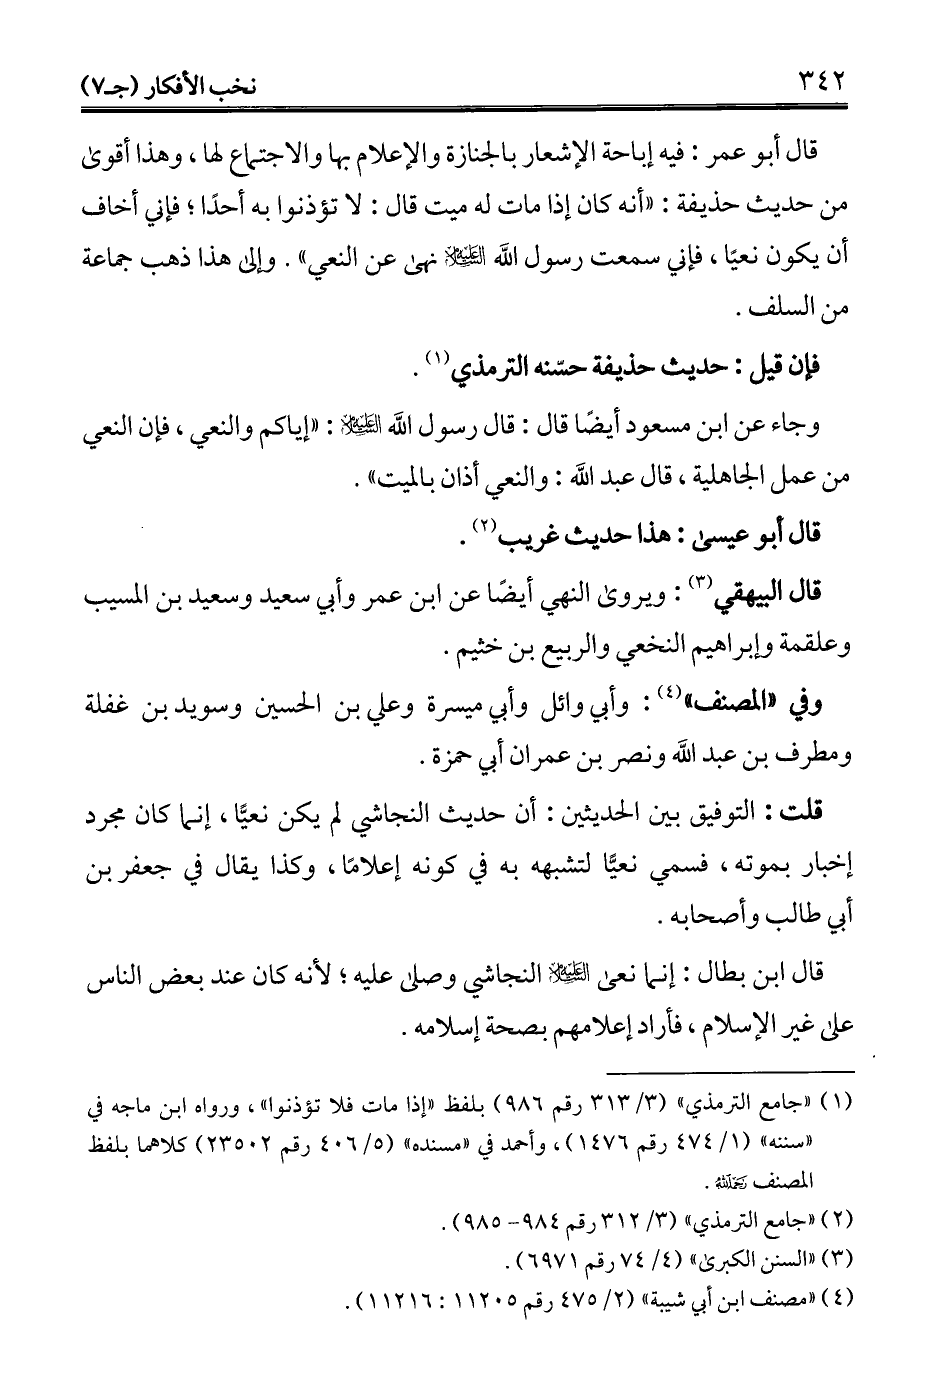 ٣٤٢ نخب الأفكار (جـ٧)
قال أبو عمر : فيه إباحة الإشعار بالجنازة والإعلام بها والاجتماع لها ، وهذا أقوى
من حديث حذيفة : «أنه كان إذا مات له ميت قال : لا تؤذنوا به أحدًا ؛ فإني أخاف
أن يكون نعيًا ، فإني سمعت رسول الله العَلَيْه نهى عن النعي» . وإلى هذا ذهب جماعة
من السلف .
فإن قيل : حديث حذيفة حسّنه الترمذي(١) .
وجاء عن ابن مسعود أيضًا قال : قال رسول الله العَلَيْه : «إياكم والنعي ، فإن النعي
من عمل الجاهلية ، قال عبد الله : والنعي أذان بالميت» .
قال أبو عيسى : هذا حديث غريب(٢) .
قال البيهقي(٣) : ويروى النهي أيضًا عن ابن عمر وأبي سعيد وسعيد بن المسيب
وعلقمة وإبراهيم النخعي والربيع بن خثيم .
وفي «المصنف»(٤) : وأبي وائل وأبي ميسرة وعلي بن الحسين وسويد بن غفلة
ومطرف بن عبد الله ونصر بن عمران أبي حمزة .
قلت : التوفيق بين الحديثين : أن حديث النجاشي لم يكن نعيًّا ، إنما كان مجرد
إخبار بموته ، فسمي نعيًّا لتشبهه به في كونه إعلامًا ، وكذا يقال في جعفر بن
أبي طالب وأصحابه .
قال ابن بطال : إنما نعى العَلَيْه النجاشي وصلى عليه ؛ لأنه كان عند بعض الناس
على غير الإسلام ، فأراد إعلامهم بصحة إسلامه .
(١) «جامع الترمذي» (٣/ ٣١٣ رقم ٩٨٦) بلفظ «إذا مات فلا تؤذنوا» ، ورواه ابن ماجه في
«سننه» (١/ ٤٧٤ رقم ١٤٧٦) ، وأحمد في «مسنده» (٥/ ٤٠٦ رقم ٢٣٥٠٢) كلاهما بلفظ
المصنف رحمه الله .
(٢) «جامع الترمذي» (٣/ ٣١٢ رقم ٩٨٤- ٩٨٥) .
(٣) «السنن الكبرى» (٤/ ٧٤ رقم ٦٩٧١) .
(٤) «مصنف ابن أبي شيبة» (٢/ ٤٧٥ رقم ١١٢٠٥ : ١١٢١٦) .